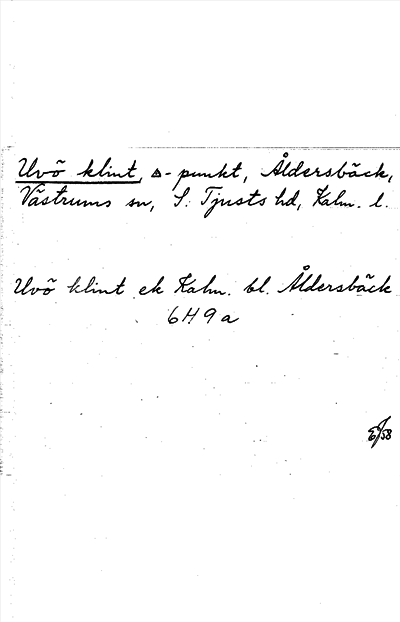 Uvö klint, △-punkt, Åldersbäck,
Västrums sn, S. Tjusts hd, Kalm. l.
Uvö klint ek Kalm. bl. Åldersbäck
6H9a